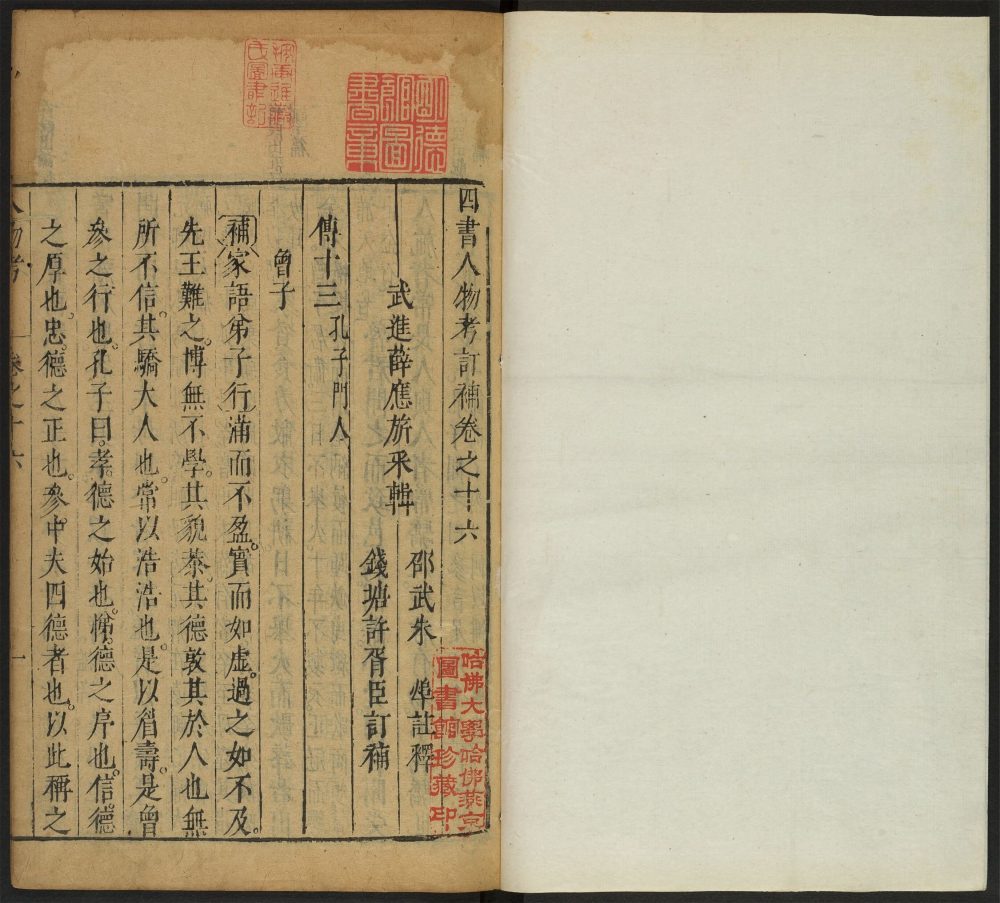 四書人物考訂補卷之十六
武進薛應旂采輯
邵武朱 㷆註釋
錢塘許胥臣訂補
傳十三 孔子門人
曾子
補家語弟子行滿而不盈。實而如虛。過之如不及。
先王難之。博無不學。其貌恭。其德敦其於人也無
所不信。其驕大人也。常以浩浩也。是以眉壽。是曾
參之行也。孔子曰。孝。德之始也。悌。德之序也。信。德
之厚也。忠。德之正也。參。中夫四德者也。以此稱之
人物考 卷之十六 一
剛德
館圖
書章
哈佛大學哈佛燕京
圖書館珍藏印